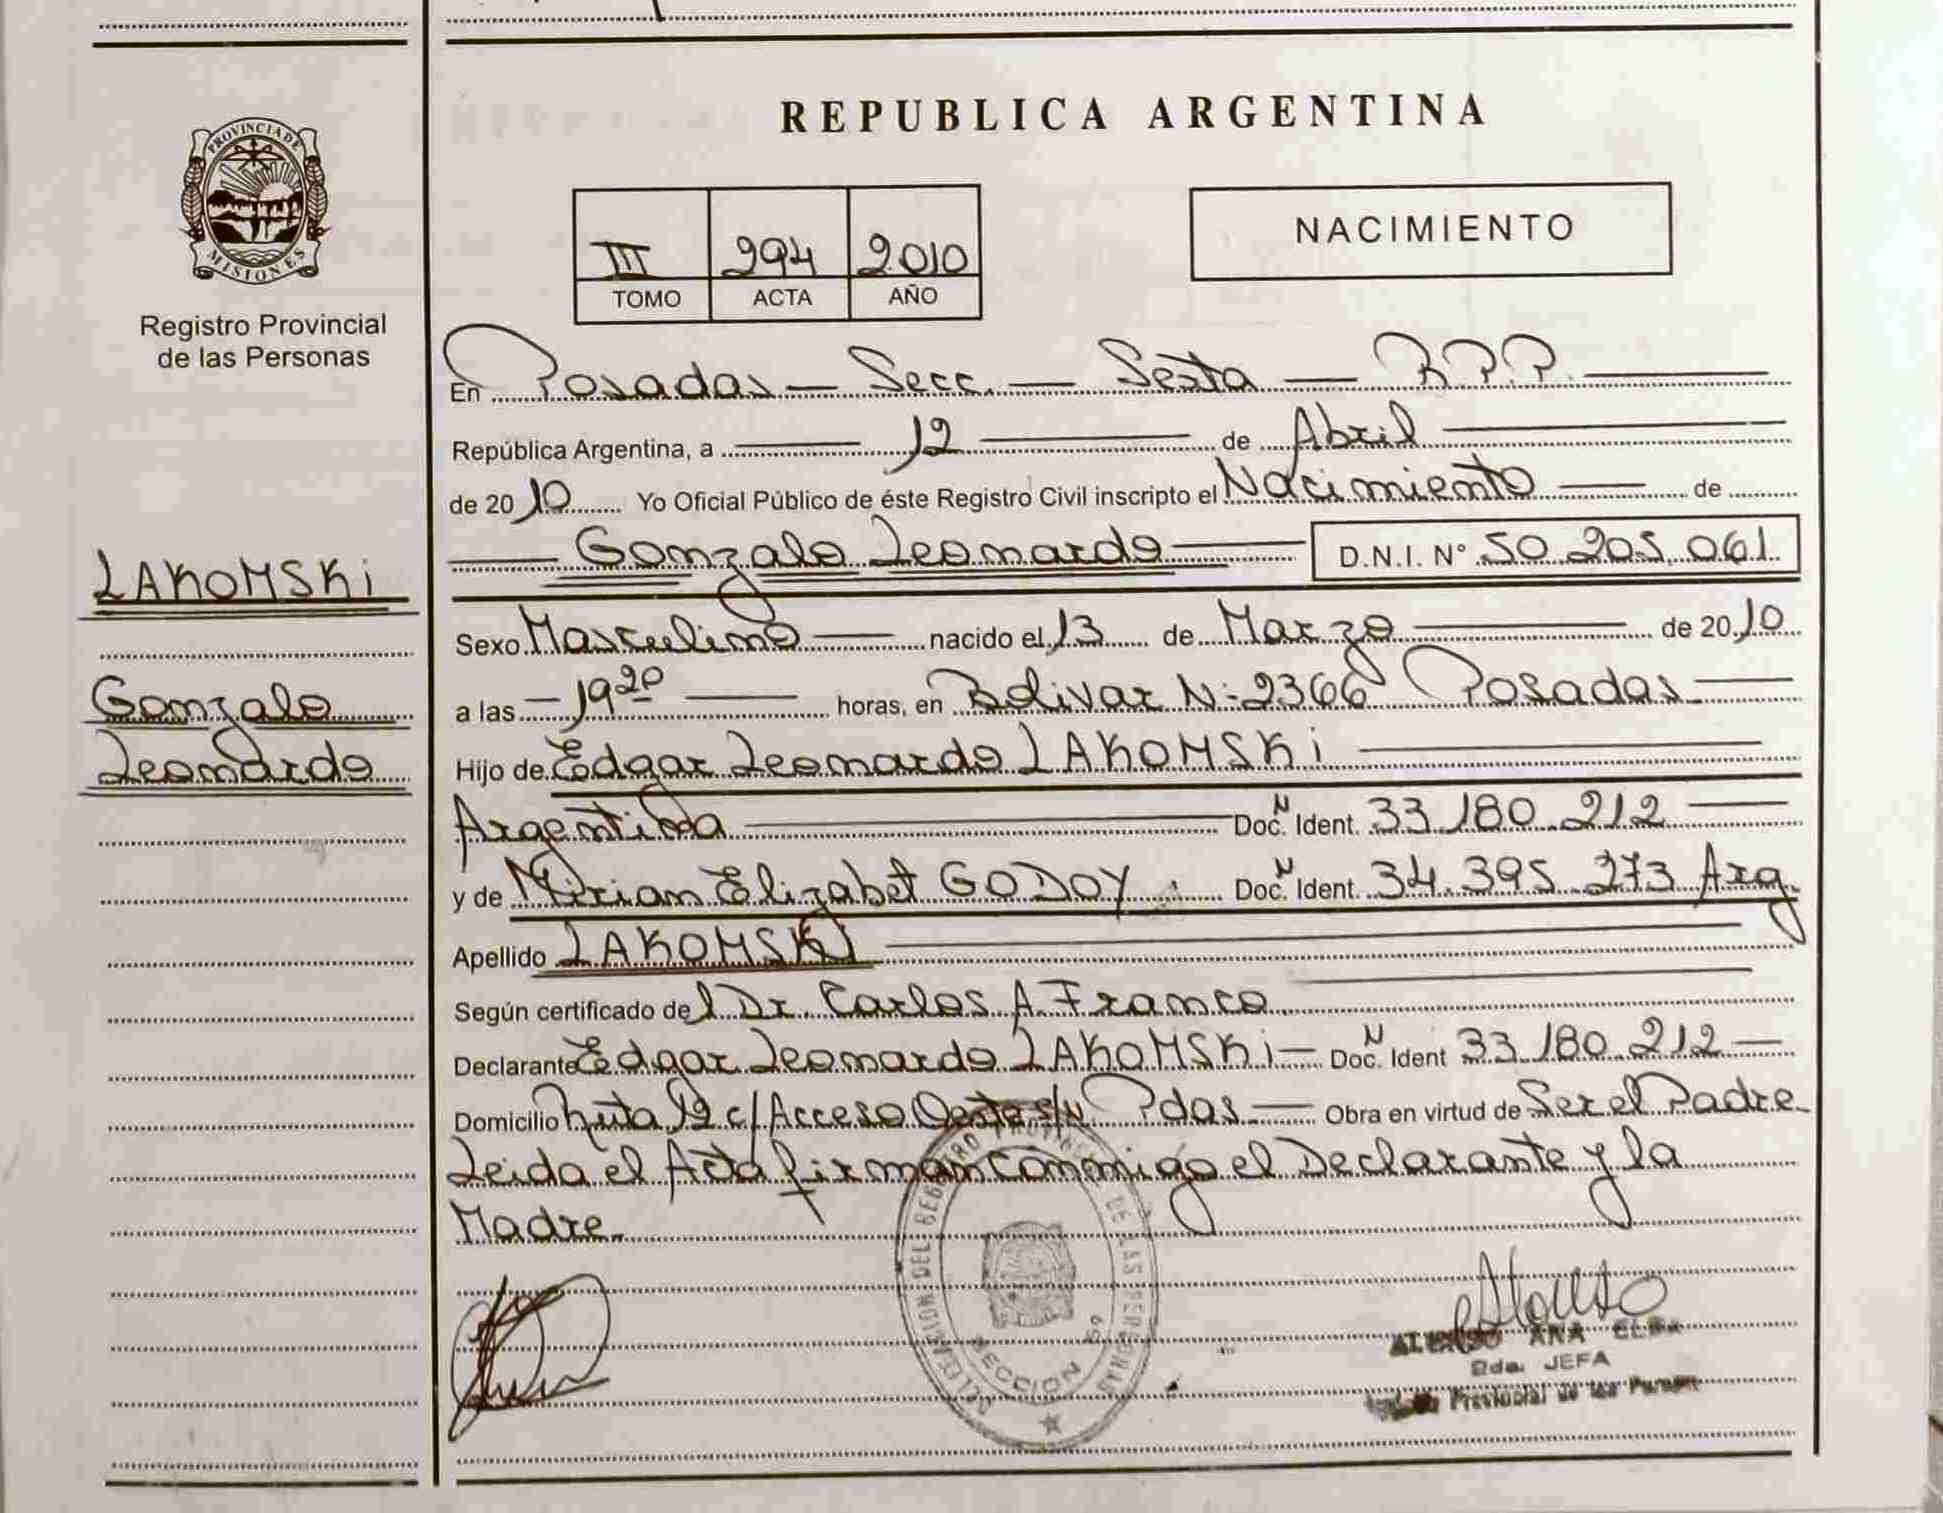 PROVINCIA DE
MISIONES
Registro Provincial
de las Personas
LAKOMSKi
Gonzalo
Leonardo
REPUBLICA ARGENTINA
III 294 2010
TOMO ACTA AÑO
NACIMIENTO
En Posadas — Secc. — Sexta — R.P.P.
República Argentina, a 12 de Abril
de 2010 Yo Oficial Público de éste Registro Civil inscripto el Nacimiento de
Gonzalo Leonardo D.N.I. N° 50.205.061
Sexo Masculino nacido el 13 de Marzo de 2010
a las 19 20 horas, en Bolivar N: 2366 Posadas
Hijo de Edgar Leonardo LAKOMSKi
Argentina Doc. N Ident. 33.180.212
y de Mirian Elizabet GODOY. Doc. N Ident. 34.395.273 Arg.
Apellido LAKOMSKI
Según certificado del Dr. Carlos A. Franco
Declarante Edgar Leonardo LAKOMSKi — Doc. N Ident 33.180.212 —
Domicilio Ruta 12 c/ Acceso Oeste s/n Pdas — Obra en virtud de Ser el Padre
Leida el Acta firman conmigo el Declarante y la
Madre.
DE LAS PERSONAS
SECCION 6ª
ANA
2da. JEFA
Provincial de las